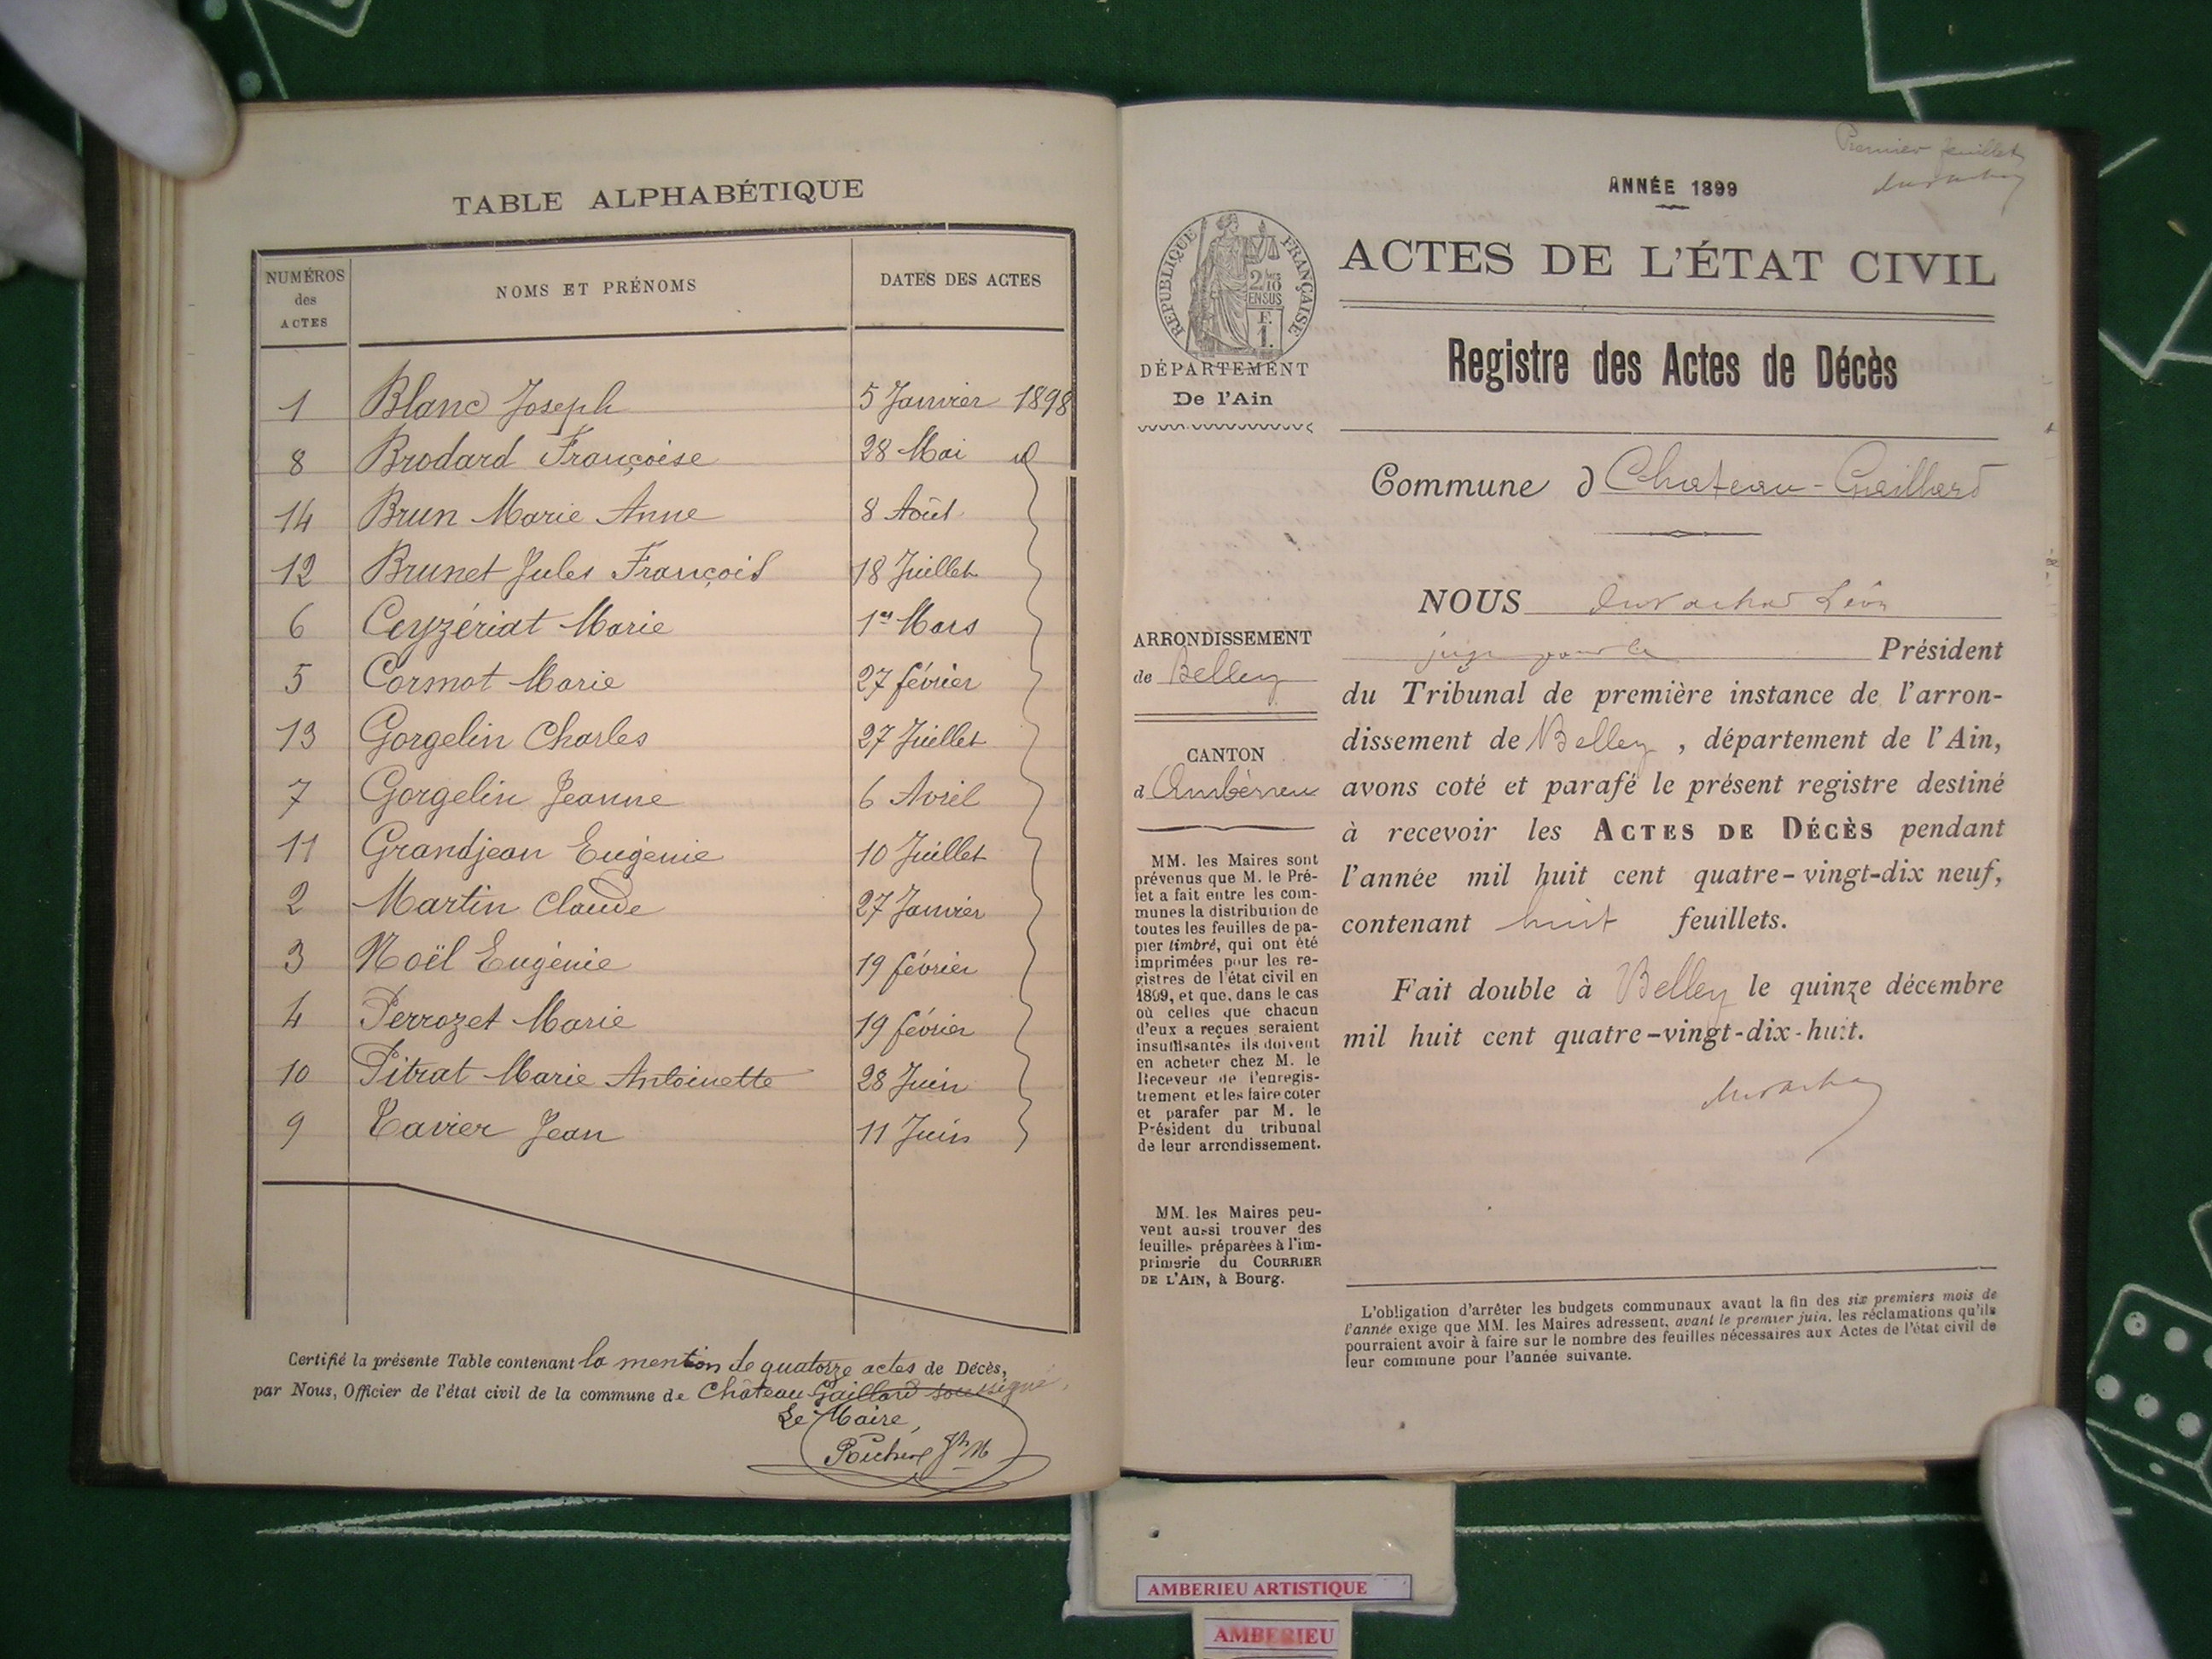 TABLE ALPHABÉTIQUE
NUMÉROS des ACTES NOMS ET PRÉNOMS DATES DES ACTES
1 Blanc Joseph 5 Janvier 1898
8 Brodard Françoise 28 Mai id
14 Brun Marie Anne 8 Août
12 Brunet Jules François 18 Juillet
6 Ceyzériat Marie 1er Mars
5 Cormot Marie 27 février
13 Gorgelin Charles 27 Juillet
7 Gorgelin Jeanne 6 Avril
11 Grandjean Eugénie 10 Juillet
2 Martin Claude 27 Janvier
3 Noël Eugénie 19 février
4 Perrozet Marie 19 février
10 Pitrat Marie Antoinette 28 Juin
9 Tavier Jean 11 Juin
Certifié la présente Table contenant la mention de quatorze actes de Décès,
par Nous, Officier de l'état civil de la commune de Château Gaillard soussigné,
Le Maire,
Premier feuillet
ANNÉE 1899
RÉPUBLIQUE FRANÇAISE
2/10
EN SUS
F.
1.
DÉPARTEMENT
De l'Ain
ACTES DE L'ÉTAT CIVIL
Registre des Actes de Décès
Commune d Chateau-Gaillard
ARRONDISSEMENT
de Belley
CANTON
d'Ambérieu
MM. les Maires sont
prévenus que M. le Pré-
fet a fait entre les com-
munes la distribution de
toutes les feuilles de pa-
pier timbré, qui ont été
imprimées pour les re-
gistres de l'état civil en
1899, et que, dans le cas
où celles que chacun
d'eux a reçues seraient
insuffisantes ils doivent
en acheter chez M. le
Receveur de l'enregis-
trement et les faire coter
et parafer par M. le
Président du tribunal
de leur arrondissement.
MM. les Maires peu-
vent aussi trouver des
feuilles préparées à l'im-
primerie du COURRIER
DE L'AIN, à Bourg.
NOUS Léon
juge pour le Président
du Tribunal de première instance de l'arron-
dissement de Belley, département de l'Ain,
avons coté et parafé le présent registre destiné
à recevoir les ACTES DE DÉCÈS pendant
l'année mil huit cent quatre-vingt-dix neuf,
contenant huit feuillets.
Fait double à Belley le quinze décembre
mil huit cent quatre-vingt-dix-huit.
L'obligation d'arrêter les budgets communaux avant la fin des six premiers mois de
l'année exige que MM. les Maires adressent, avant le premier juin, les réclamations qu'ils
pourraient avoir à faire sur le nombre des feuilles nécessaires aux Actes de l'état civil de
leur commune pour l'année suivante.
AMBERIEU ARTISTIQUE
AMBERIEU